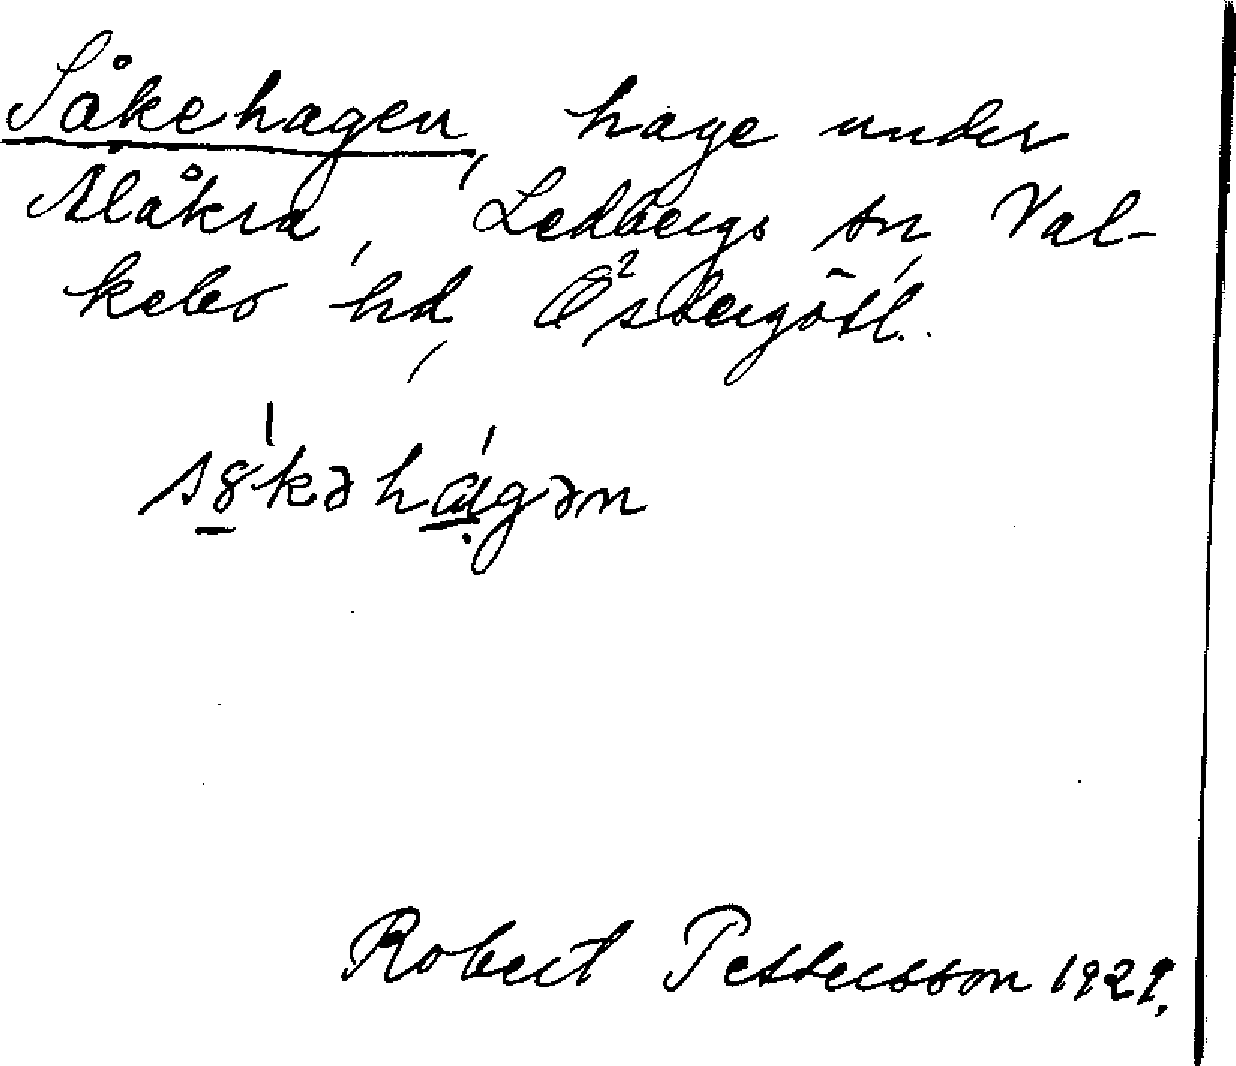 Såkehagen, hage under
Ålåkra, Ledbergs sn, Val-
kebo hd, Östergötl.
Robert Pettersson 1929.